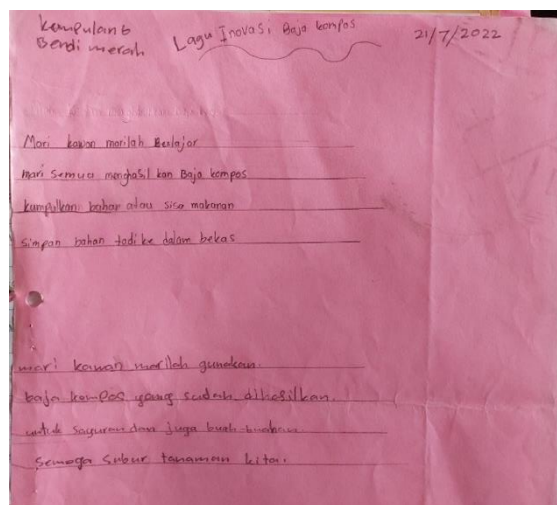 Kumpulan 6
Bendi merah
Lagu Inovasi Baja kompos
21/7/2022
Mari kawan marilah Belajar
mari semua menghasilkan Baja kompos
kumpulkan bahan atau sisa makanan
simpan bahan tadi ke dalam bekas
mari kawan marilah gunakan.
baja kompos yang sudah dihasilkan.
untuk sayuran dan juga buah-buahan.
Semoga subur tanaman kita.